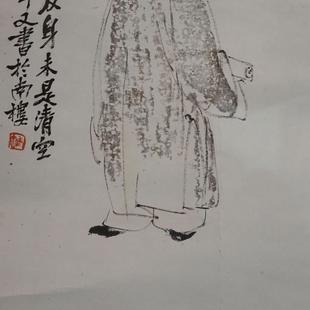 身未是清空
又書於南樓